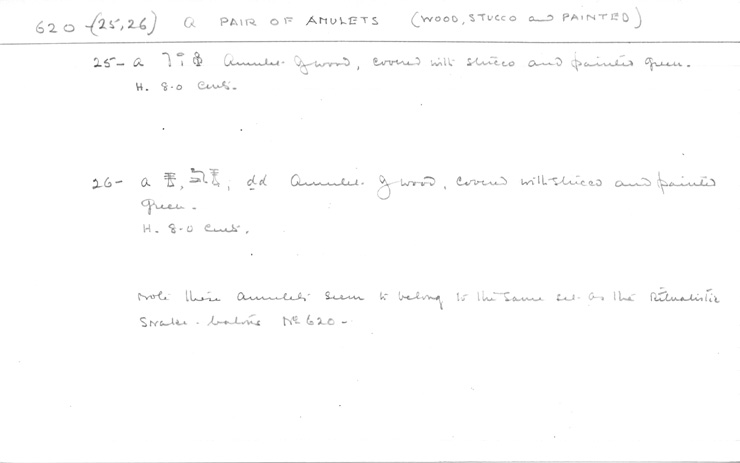 620-(25,26) A PAIR OF AMULETS (WOOD, STUCCO and PAINTED)
25- a 𓊹𓏲𓇅 Amulet of wood, covered with stucco and painted green.
H. 8.0 Cms.
26- a 𓊽, ḏd Amulet of wood, covered with stucco and painted
green.
H. 8.0 Cms.
Note these amulets seem to belong to the same set as the Ritualistic
Snake batons No 620-